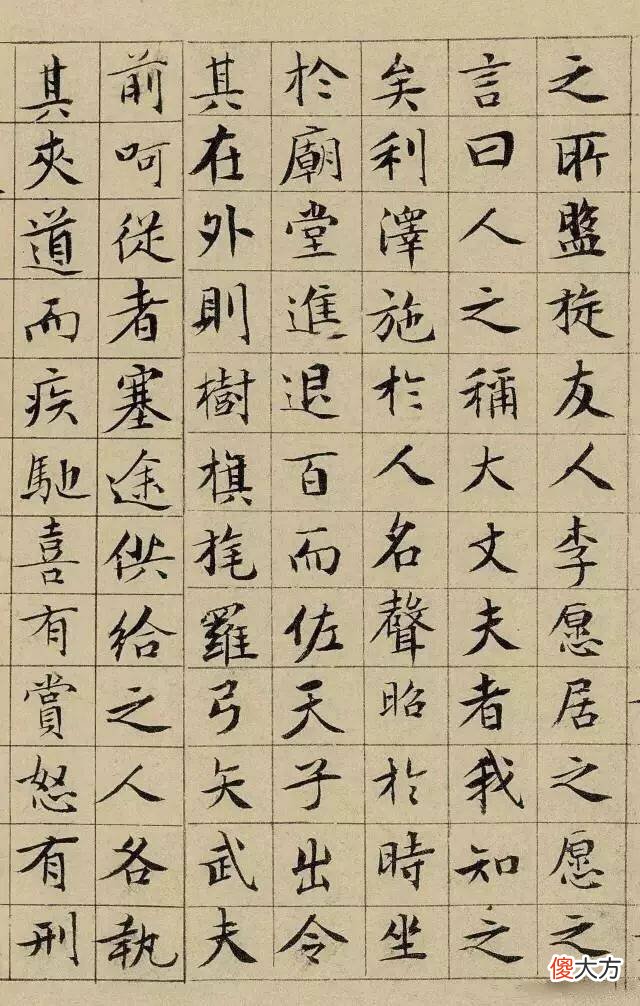 之所盤旋友人李愿居之愿之
言曰人之稱大丈夫者我知之
矣利澤施於人名聲昭於時坐
於廟堂進退百而佐天子出令
其在外則樹旗旄羅弓矢武夫
前呵從者塞途供給之人各執
其夾道而疾馳喜有賞怒有刑
傻大方